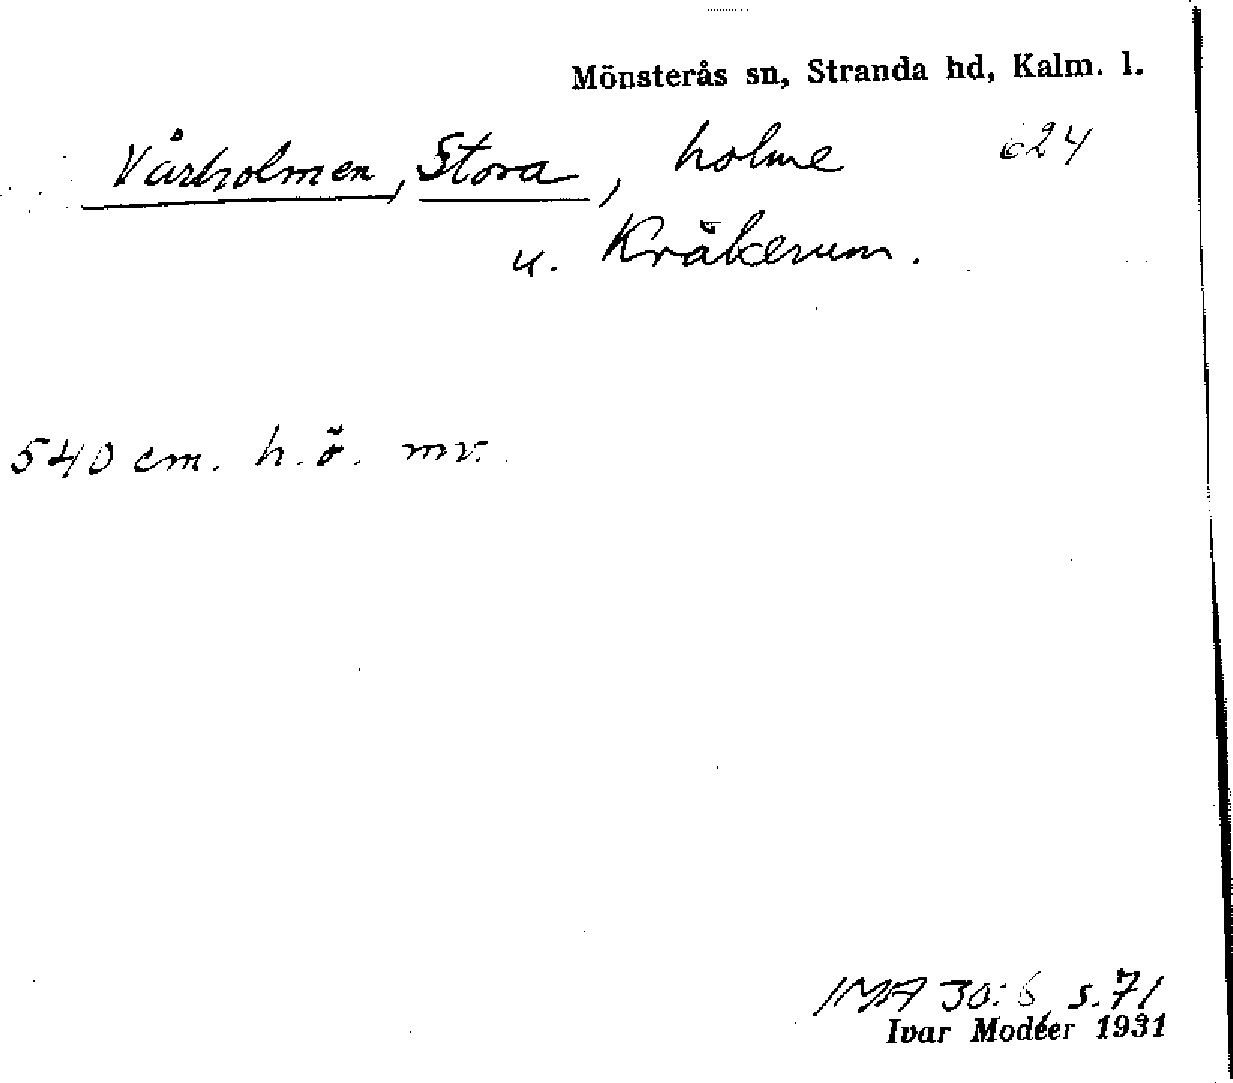 Mönsterås sn, Stranda hd, Kalm. l.
Vårholmen, Stora, holme c24
u. Kråkerum.
540 cm. h.ö. mv.
IMA 30:6, s.71
Ivar Modéer 1931